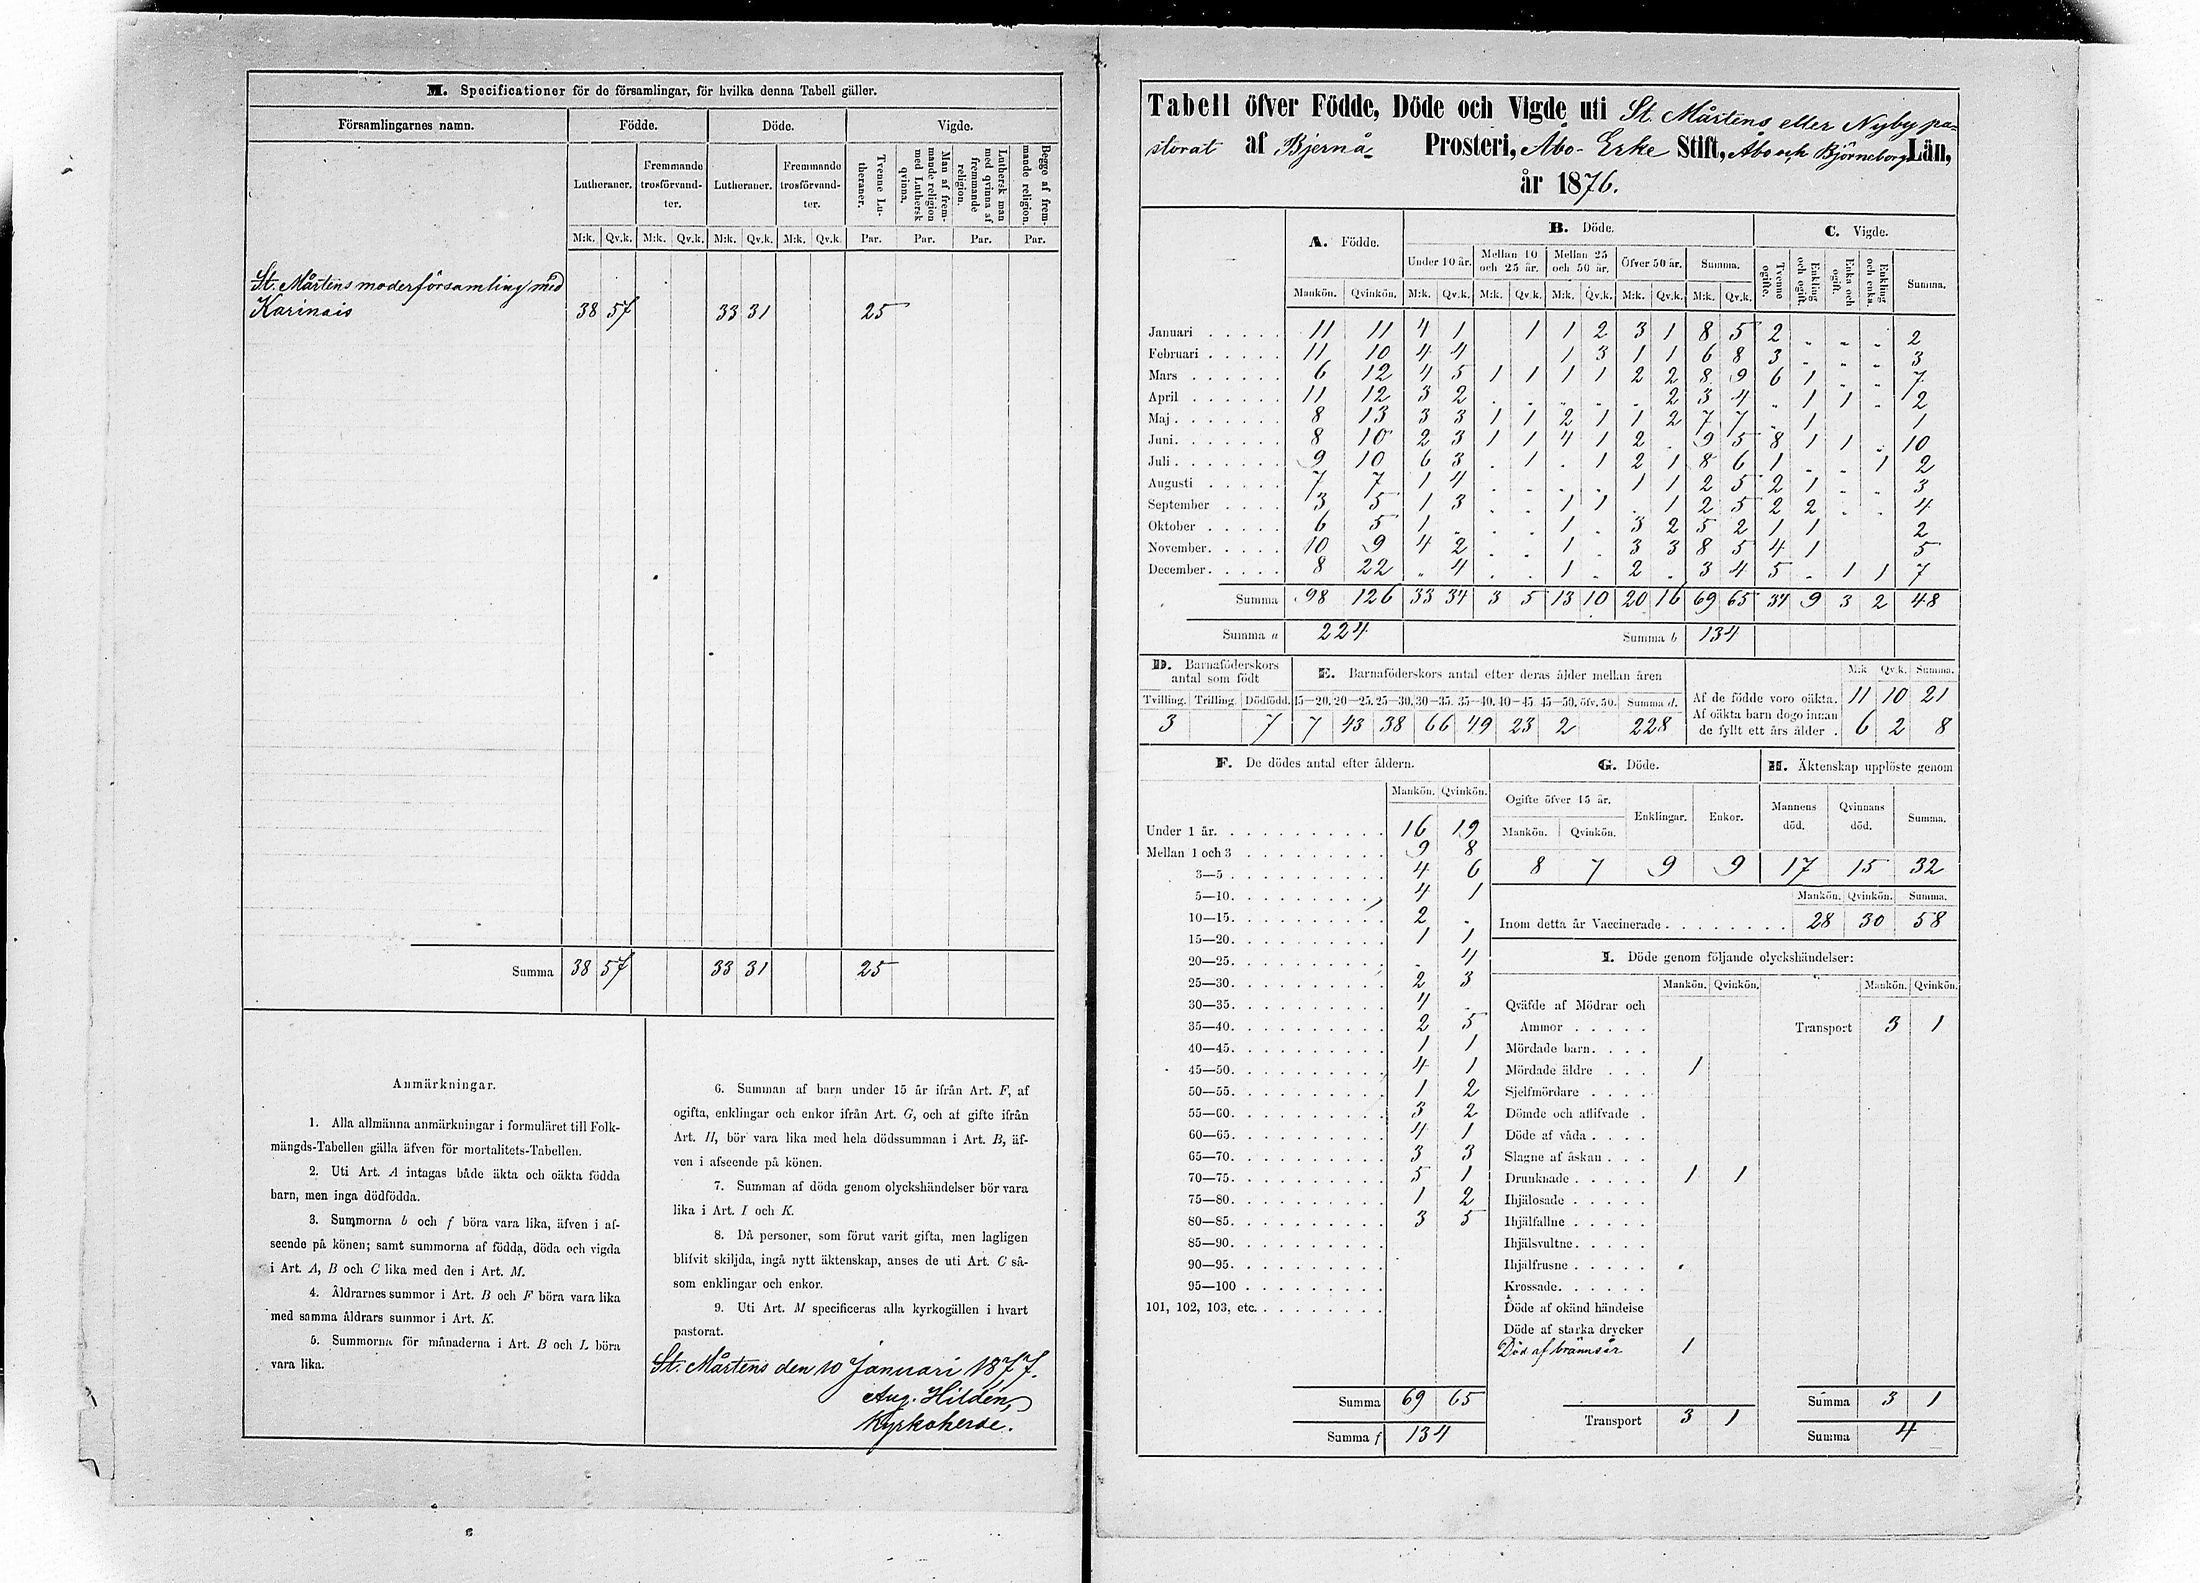 M. Specificationer för de församlingar, för hvilka denna Tabell gäller.
Församlingarnes namn. Födde. Döde. Vigde.
Lutheraner. Fremmande trosförvandter. Lutheraner. Fremmande trosförvandter. Tvenne Lutheraner. Man af fremmande religion med Luthersk qvinna. Luthersk man med qvinna af fremmande religion. Begge af fremmande religion.
M:k. Qv.k. M:k. Qv.k. M:k. Qv.k. M:k. Qv.k. Par. Par. Par. Par.
St. Mårtens moderförsamling med
Karinais 38 57 33 31 25
Summa 38 57 33 31 25
Anmärkningar.
1. Alla allmänna anmärkningar i formuläret till Folk-
mängds-Tabellen gälla äfven för mortalitets-Tabellen.
2. Uti Art. A intagas både äkta och oäkta födda
barn, men inga dödfödda.
3. Summorna b och f böra vara lika, äfven i af-
seende på könen; samt summorna af födda, döda och vigda
i Art. A, B och C lika med den i Art. M.
4. Åldrarnes summor i Art. B och F böra vara lika
med samma åldrars summor i Art. K.
5. Summorna för månaderna i Art. B och L böra
vara lika.
6. Summan af barn under 15 år ifrån Art. F, af
ogifta, enklingar och enkor ifrån Art. G, och af gifte ifrån
Art. H, bör vara lika med hela dödssumman i Art. B, äf-
ven i afseende på könen.
7. Summan af döda genom olyckshändelser bör vara
lika i Art. I och K.
8. Då personer, som förut varit gifta, men lagligen
blifvit skiljda, ingå nytt äktenskap, anses de uti Art. C så-
som enklingar och enkor.
9. Uti Art. M specificeras alla kyrkogällen i hvart
pastorat.
St. Mårtens den 10 Januari 1877.
Aug. Hildén,
Kyrkoherde.
Tabell öfver Födde, Döde och Vigde uti St. Mårtens eller Nyby pa-
storat af Bjernå Prosteri, Åbo- Erke Stift, Åbo och Björneborgs Län,
år 1876.
A. Födde. B. Döde. C. Vigde.
Under 10 år. Mellan 10 och 25 år. Mellan 25 och 50 år. Öfver 50 år. Summa. Tvenne ogifte. Enkling och ogift. Enka och ogift. Enkling och enka. Summa.
Mankön. Qvinkön. M:k. Qv.k. M:k. Qv.k. M:k. Qv.k. M:k. Qv.k. M:k. Qv.k.
Januari 11 11 4 1 1 1 2 3 1 8 5 2 „ „ „ 2
Februari 11 10 4 4 1 3 1 1 6 8 3 „ „ „ 3
Mars 6 12 4 5 1 1 1 1 2 2 8 9 6 1 „ „ 7
April 11 12 3 2 . . . . . 2 3 4 „ 1 1 „ 2
Maj 8 13 3 3 1 1 2 1 1 2 7 7 . 1 1
Juni 8 10 2 3 1 1 4 1 2 . 9 5 8 1 1 . 10
Juli 9 10 6 3 . 1 . 1 2 1 8 6 1 . . 1 2
Augusti 7 7 1 4 . . . . 1 1 2 5 2 1 „ „ 3
September 3 5 1 3 . . 1 1 . 1 2 5 2 2 . . 4
Oktober 6 5 1 . . . 1 . 3 2 5 2 1 1 2
November 10 9 4 2 . . 1 . 3 3 8 5 4 1 5
December 8 22 „ 4 . . 1 . 2 . 3 4 5 . 1 1 7
Summa 98 126 33 34 3 5 13 10 20 16 69 65 34 9 3 2 48
Summa a 224 Summa b 134
D. Barnaföderskors antal som födt
Tvilling. Trilling. Dödfödd.
3 7
E. Barnaföderskors antal efter deras ålder mellan åren
15—20. 20—25. 25—30. 30—35. 35—40. 40—45. 45—50. öfv. 50. Summa d.
7 43 38 66 49 23 2 228
M:k Qv.k. Summa.
Af de födde voro oäkta. 11 10 21
Af oäkta barn dogo innan
de fyllt ett års ålder . 6 2 8
F. De dödes antal efter åldern.
Mankön. Qvinkön.
Under 1 år. 16 19
Mellan 1 och 3 9 8
3—5 4 6
5—10. 4 1
10—15. 2 .
15—20. 1 1
20—25. . 4
25—30. 2 3
30—35. 4 .
35—40. 2 5
40—45. 1 1
45—50. 4 1
50—55. 1 2
55—60. 3 2
60—65. 4 1
65—70. 3 3
70—75. 5 1
75—80. 1 2
80—85. 3 5
85—90.
90—95.
95—100
101, 102, 103, etc.
Summa 69 65
Summa f 134
G. Döde.
Ogifte öfver 15 år. Enklingar. Enkor.
Mankön. Qvinkön.
8 7 9 9
H. Äktenskap upplöste genom
Mannens död. Qvinnans död. Summa.
17 15 32
Mankön. Qvinkön. Summa.
Inom detta år Vaccinerade 28 30 58
I. Döde genom följande olyckshändelser:
Mankön. Qvinkön. Mankön. Qvinkön.
Qväfde af Mödrar och
Ammor Transport 3 1
Mördade barn.
Mördade äldre 1
Sjelfmördare
Dömde och aflifvade
Döde af våda
Slagne af åskan
Drunknade 1 1
Ihjälosade
Ihjälfallne
Ihjälsvultne.
Ihjälfrusne
Krossade.
Döde af okänd händelse
Döde af starka drycker
Död af brännsår 1
Transport 3 1
Summa 3 1
Summa 4